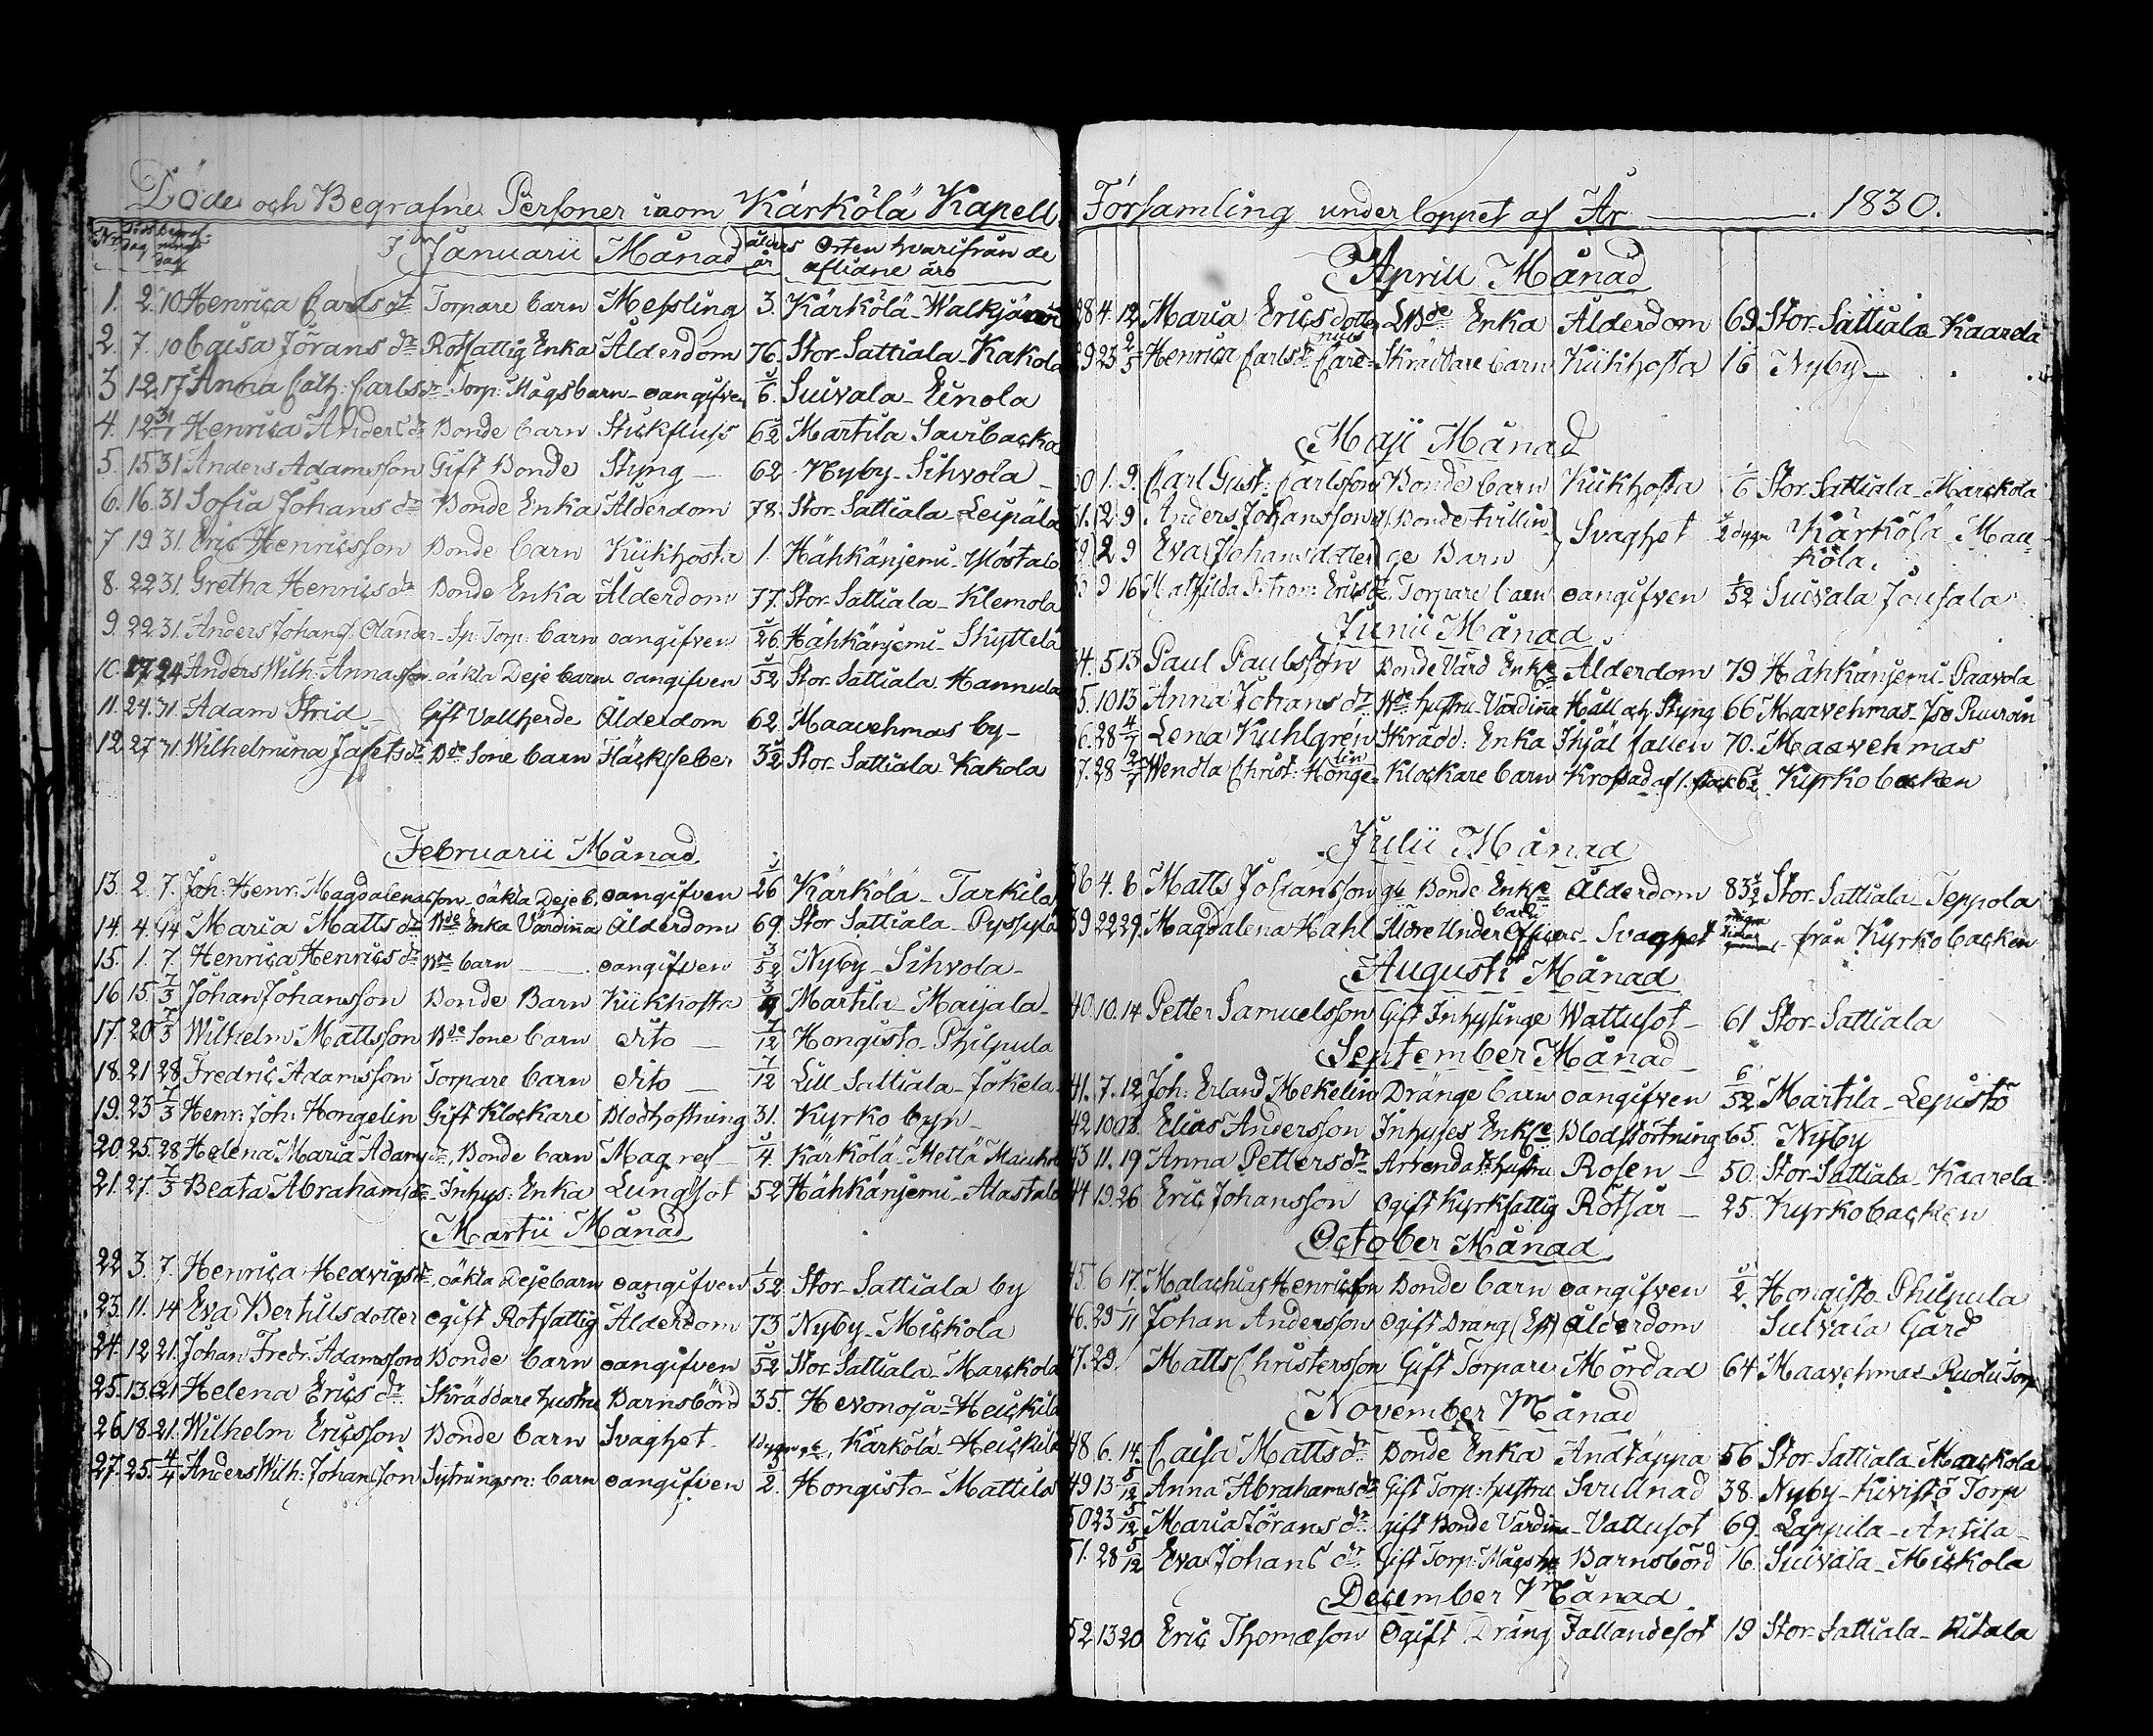 Döde och Begrafne Personer inom Kärkölä Kapell
Nr. Döds dag Begrafnings dag I Januarii Månad ålders år Orten hvarifrån de aflidne äro
1. 2. 10 Henrica Carls dr Torpare barn Messling 3. Kärkölä
2. 7. 10 Cajsa Jörans dr Rotfattig Enka Ålderdom 76. Stor-Sattiala-Kakola
3 12 17 Anna Cath: Carls dr Torp: Mågs barn oangifven Suivala-Einola
4. 12 31/1 Henrica Anders dr Bonde barn Stickfluss Martila Sauibacka
5. 15 31 Anders Adamsson Gift Bonde Styng 62 Nyby-Sihvola
6. 16. 31 Sofia Johans dr Bonde Enka Ålderdom 78. Stor-Sattiala-Leipälä
7 19. 31. Eric Henricsson Bonde barn Kikhosta 1. Hähkänjemi-Yöstalo
8. 22 31. Gretha Henrics dr Bonde Enka Ålderdom 77. Stor-Sattiala-Klemola
9. 22 31. Anders Johans Olander Sp: Torp: barn oangifven 5/26 Hähkänjemi-Skyttelä
10. 17 24 Anders Wilh: Annasson oäkta Deje barn oangifven 5/52 Stor-Sattiala Hannula
11. 24. 31. Adam Strid Gift Vallherde Ålderdom 62. Maavehmas by
12 27 31. Wilhelmina Jafets dr Bde Sone barn Fläckfeber 3 1/2 Stor-Sattiala-Kakola
Februarii Månad.
13. 2. 7. Joh: Henr: Magdalenasson oäkta Deje b. oangifven Kärkölä-Tarkila
14. 4. 14 Maria Matts dr Bde Enka Värdinna Ålderdom 69. Stor Sattiala
15. 1. 7. Henrica Henrics dr Bde barn oangifven 3/52 Nyby-Sihvola
16 15. 7/3 Johan Johansson Bonde Barn Kikhosta Martila-Maijala
17. 20 7/3 Wilhelm Mattsson Bde Sone barn dito 7/12 Hongisto-Philpula
18. 21 28 Fredric Adamsson Torpare barn dito 7/12 Lill Sattiala-Jokela
19. 23 7/3 Henr: Joh: Hongelin Gift Klockare Blodhostning 31. Kyrko byn
20. 25. 28 Helena Maria Adams dr, Bonde barn Mag ref Kärkölä-Mettä Maukola
21. 27. 7/3 Beata Abrahams dr Inhys: Enka Lungsot 52 Hähkänjemi-Alastalo
Martii Månad
22 3. 7. Henrica Hedvigs dr oäkta Dejebarn oangifven 1/52 Stor-Sattiala by
23. 11. 14 Eva Bertils dotter ogift Rotfattig Ålderdom 73 Nyby-Mickola
24. 12 21. Johan Fredr. Adamsson Bonde barn oangifven 5/52 Stor-Sattiala-Marckola
25. 13. 21 Helena Erics dr Skräddare hustru Barnsbörd 35. Hevonoja-Heickilä
26 18 21. Wilhelm Ericsson Bonde barn Svaghet Kärkölä-Heickilä
27. 25. 4/4 Anders Wilh: Johansson Sytningsm: barn oangifven Hongisto-Mattila
Församling under loppet af År 1830.
Aprill Månad
28 4. 12 Maria Erics dotter Bde Enka Ålderdom 69. Stor-Sattiala-Kaarela
29 25 2/5 Henrica Carls dr Carenius Skräddare barn Kikhosta Nyby
Maji Månad
30 1. 9. Carl Gust: Carlsson Bonde barn Kikhosta 1/6 Stor-Sattiala-Marckola
31. 2. 9 Anders Johansson Bonde tvillin Svaghet 2 dygn Kärkölä-Mau
32 2 9 Eva Johansdotter ge Barn kola.
33 9 16 Mathilda Erics dr Torpare barn oangifven Suivala Joufala
Junii Månad
34. 5 13 Paul Paulsson Bonde Värd Enkl. Ålderdom 79 Hähkänjemi-Paavola
35. 10 13 Anna Johans dr Bde hustru Värdinna Håll och Styng 66 Maavehmas-Iso Puuroin
36. 28 4/7 Lena Kuhlgrén Skrädd: Enka Ihjäl fallen 70. Maavehmas
37. 28 2/7 Wendla Christ: Hongelin Klockare barn Krossad af 1. stock 6 1/2 Kyrkobacken
Julii Månad
38 4. 8 Matts Johansson gl. Bonde Enkl. Ålderdom 83 1/2 Stor-Sattiala-Seppola
39 22 29. Magdalena Hahl Äldre Under Officers barn Svaghet några timar gammal från Kyrkobacken
Augusti Månad
40. 10. 14 Petter Samuelsson Gift Inhysinge Wattusot 61 Stor-Sattiala
September Månad
41. 7. 12 Joh: Erland Mekelin Dränge barn oangifven 6/52 Martila-Lepistö
42 10 Elias Andersson Inhyses Enkl. Blodstörtning 65. Nyby
43 11. 19 Anna Petters dr Arrendat: hustru Rosen 50. Stor-Sattiala-Kaarela
44 19. 26 Eric Johansson ogift Kyrkfattig Rötsår 25. Kyrkobacken
October Månad
45. 6 17. Malachias Henricsson Bonde barn oangifven Hongisto-Philpula
46. 29 /11 Johan Andersson ogift Dräng Ålderdom Suivala Gård
47. 29. Matts Christersson Gift Torpare Mördad 64 Maavehmas-Ruolu Torp
November Månad
48. 6. 14. Caisa Matts dr Bonde Enka Andtäppa 56 Stor-Sattiala Marckola
49 13 5/12 Anna Abrahams dr Gift Torp: hustru Svullnad 38. Nyby-Kivistö Torp
50 23 5/12 Maria Jörans dr gift Bonde Värdinna Vattusot 69. Lappila-Antila
51. 28 5/12 Eva Johans dr Gift Torp: Mågs h: Barnsbörd Suivala-Mickola
December Månad
52. 13 20 Eric Thomæson Ogift Dräng Fallandesot 19 Stor-Sattiala-Ritala